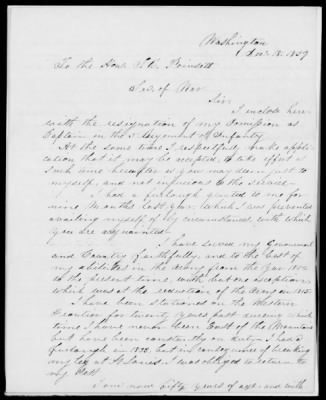 Washington
Dec. 18. 1839
To the Hon. J. R. Poinsett
Sec. of War
Sir
I inclose here
with the resignation of my Commission as
Captain in the 5 Regiment of Infantry
At the same time I respectfully make appli
cation that it may be accepted, to take effect at
such time hereafter as you may deem just to
myself, and not injurious to the service
I had a furlough granted to me for
nine Months last year which I was prevented
availing myself of by circumstances with which
you are acquainted
I have served my Government
and Country faithfully, and to the best of
my abilities in the Army from the year
to the present time, with but one exception
which was at the reduction of the Army in 1815
I have been stationed on the Western
Frontier for twenty years past during which
time I have never been East of the Mountains
but have been constantly on duty. I had a
furlough in 1832. but in consequence of breaking
my leg at St Louis I was obliged to return to
my Post
I am now Fifty years of age and with